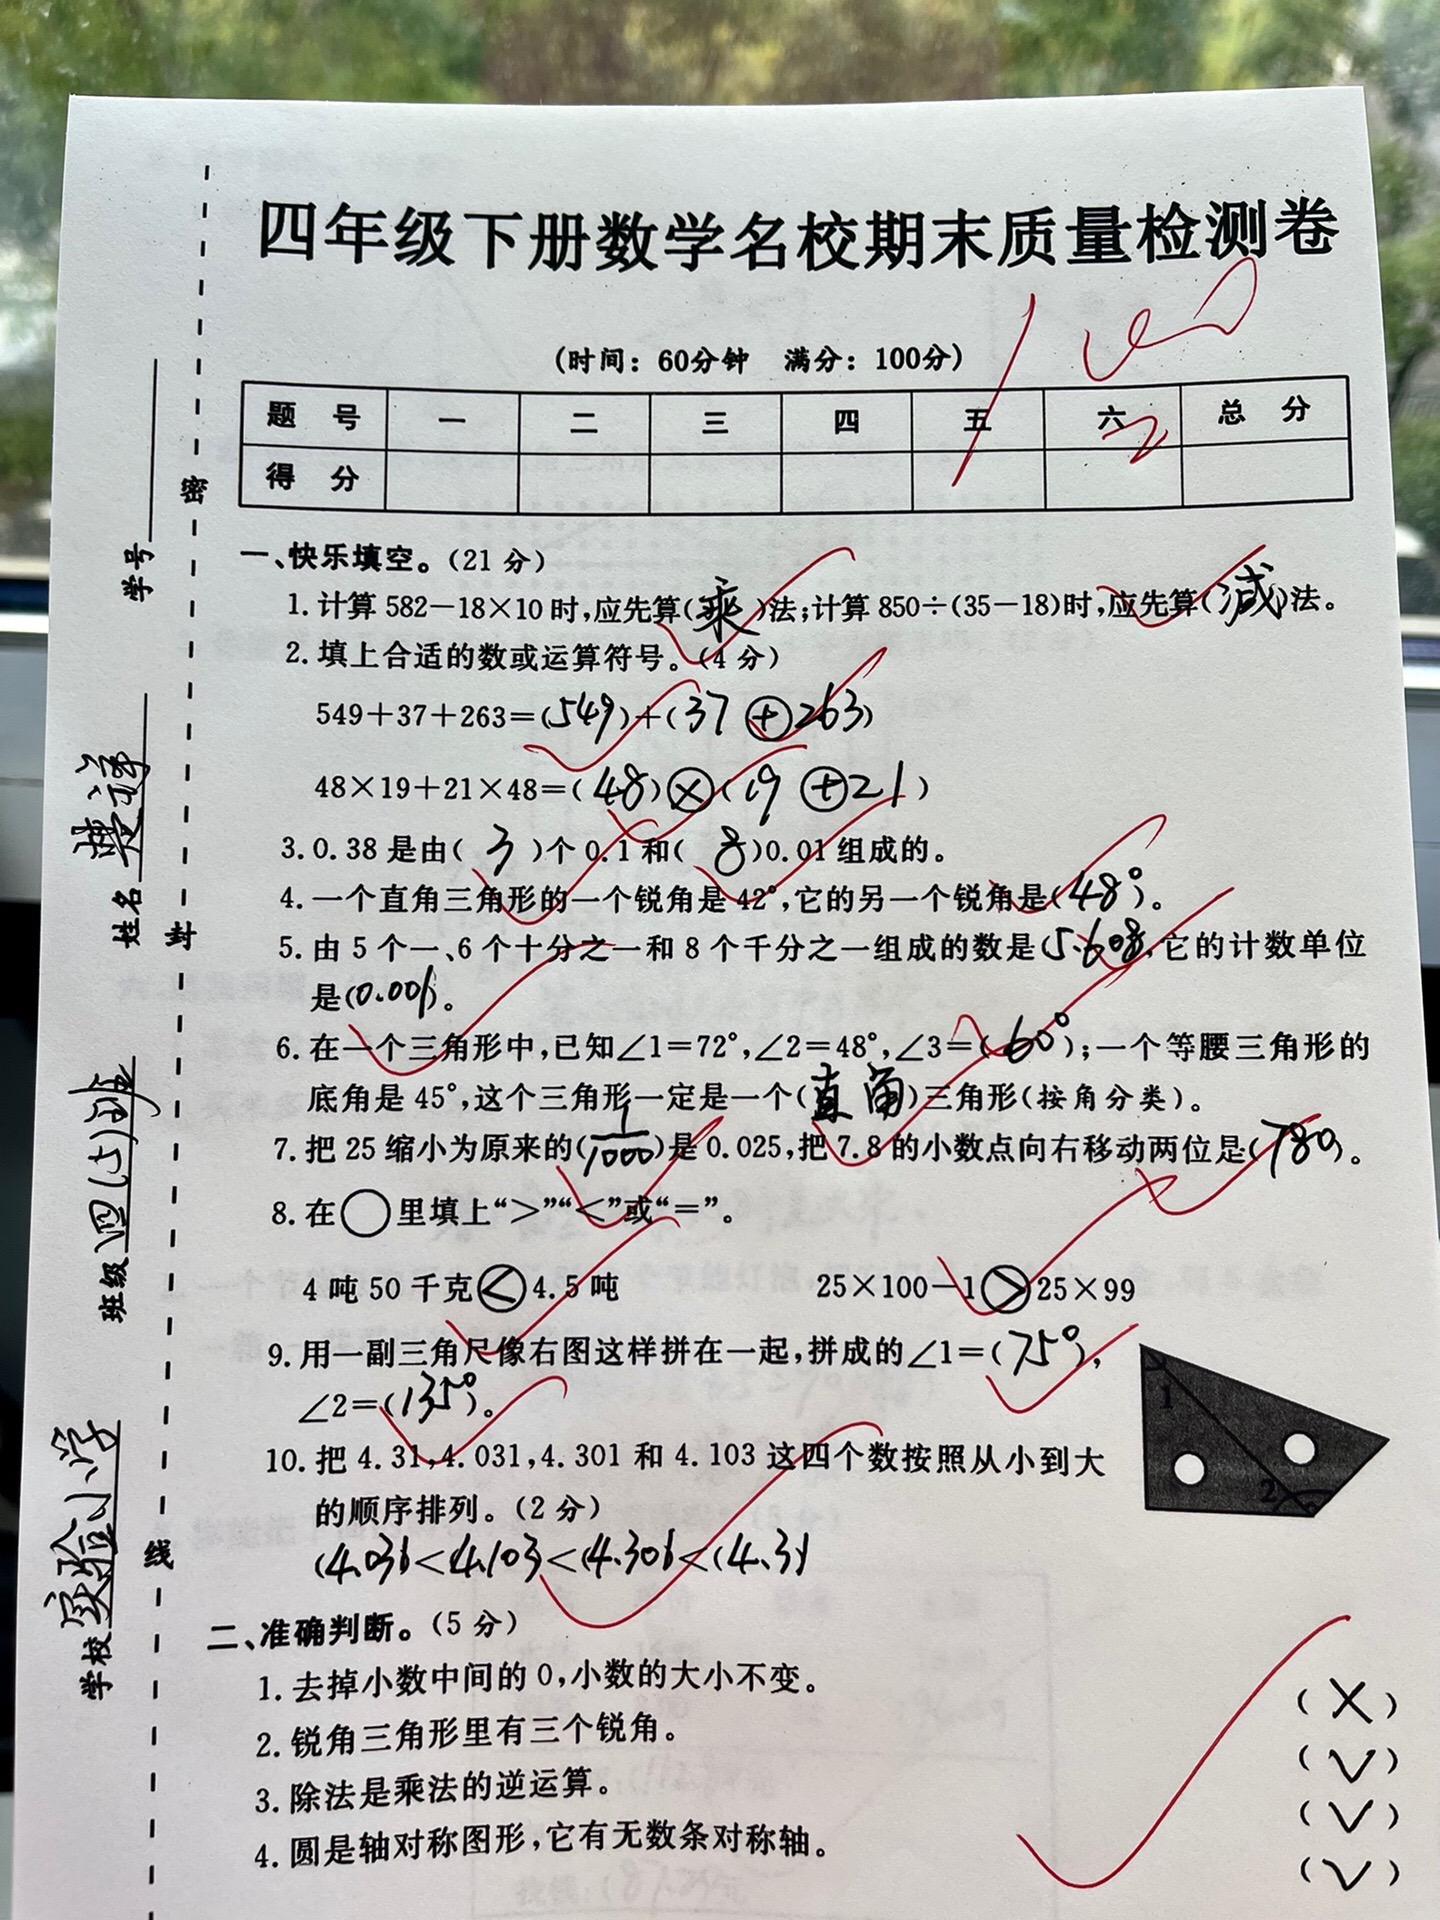 四年级下册数学名校期末质量检测卷
(时间：60分钟 满分：100分)
100
题 号 一 二 三 四 五 六 总 分
得 分
学号
姓名
班级 四(5)班
学校 实验小学
密
封
线
一、快乐填空。(21 分)
1.计算 582－18×10 时,应先算(乘)法;计算 850÷(35－18)时,应先算(减)法。
2.填上合适的数或运算符号。(4 分)
549＋37＋263=(549)＋(37 ⊕ 263)
48×19＋21×48=(48)⊗(19 ⊕ 21)
3.0.38 是由( 3 )个 0.1 和( 8 )0.01 组成的。
4.一个直角三角形的一个锐角是 42°,它的另一个锐角是(48°)。
5.由 5 个一、6 个十分之一和 8 个千分之一组成的数是(5.608),它的计数单位
是(0.001)。
6.在一个三角形中,已知∠1=72°,∠2=48°,∠3=(60°);一个等腰三角形的
底角是 45°,这个三角形一定是一个(直角)三角形(按角分类)。
7.把 25 缩小为原来的(1/1000)是 0.025,把 7.8 的小数点向右移动两位是(780)。
8.在○里填上“>”“<”或“=”。
4 吨 50 千克 < 4.5 吨 25×100－1 > 25×99
9.用一副三角尺像右图这样拼在一起,拼成的∠1=(75°),
∠2=(135°)。
1
2
10.把 4.31,4.031,4.301 和 4.103 这四个数按照从小到大
的顺序排列。(2 分)
(4.031)<(4.103)<(4.301)<(4.31)
二、准确判断。(5 分)
1.去掉小数中间的 0,小数的大小不变。 (×)
2.锐角三角形里有三个锐角。 (√)
3.除法是乘法的逆运算。 (√)
4.圆是轴对称图形,它有无数条对称轴。 (√)